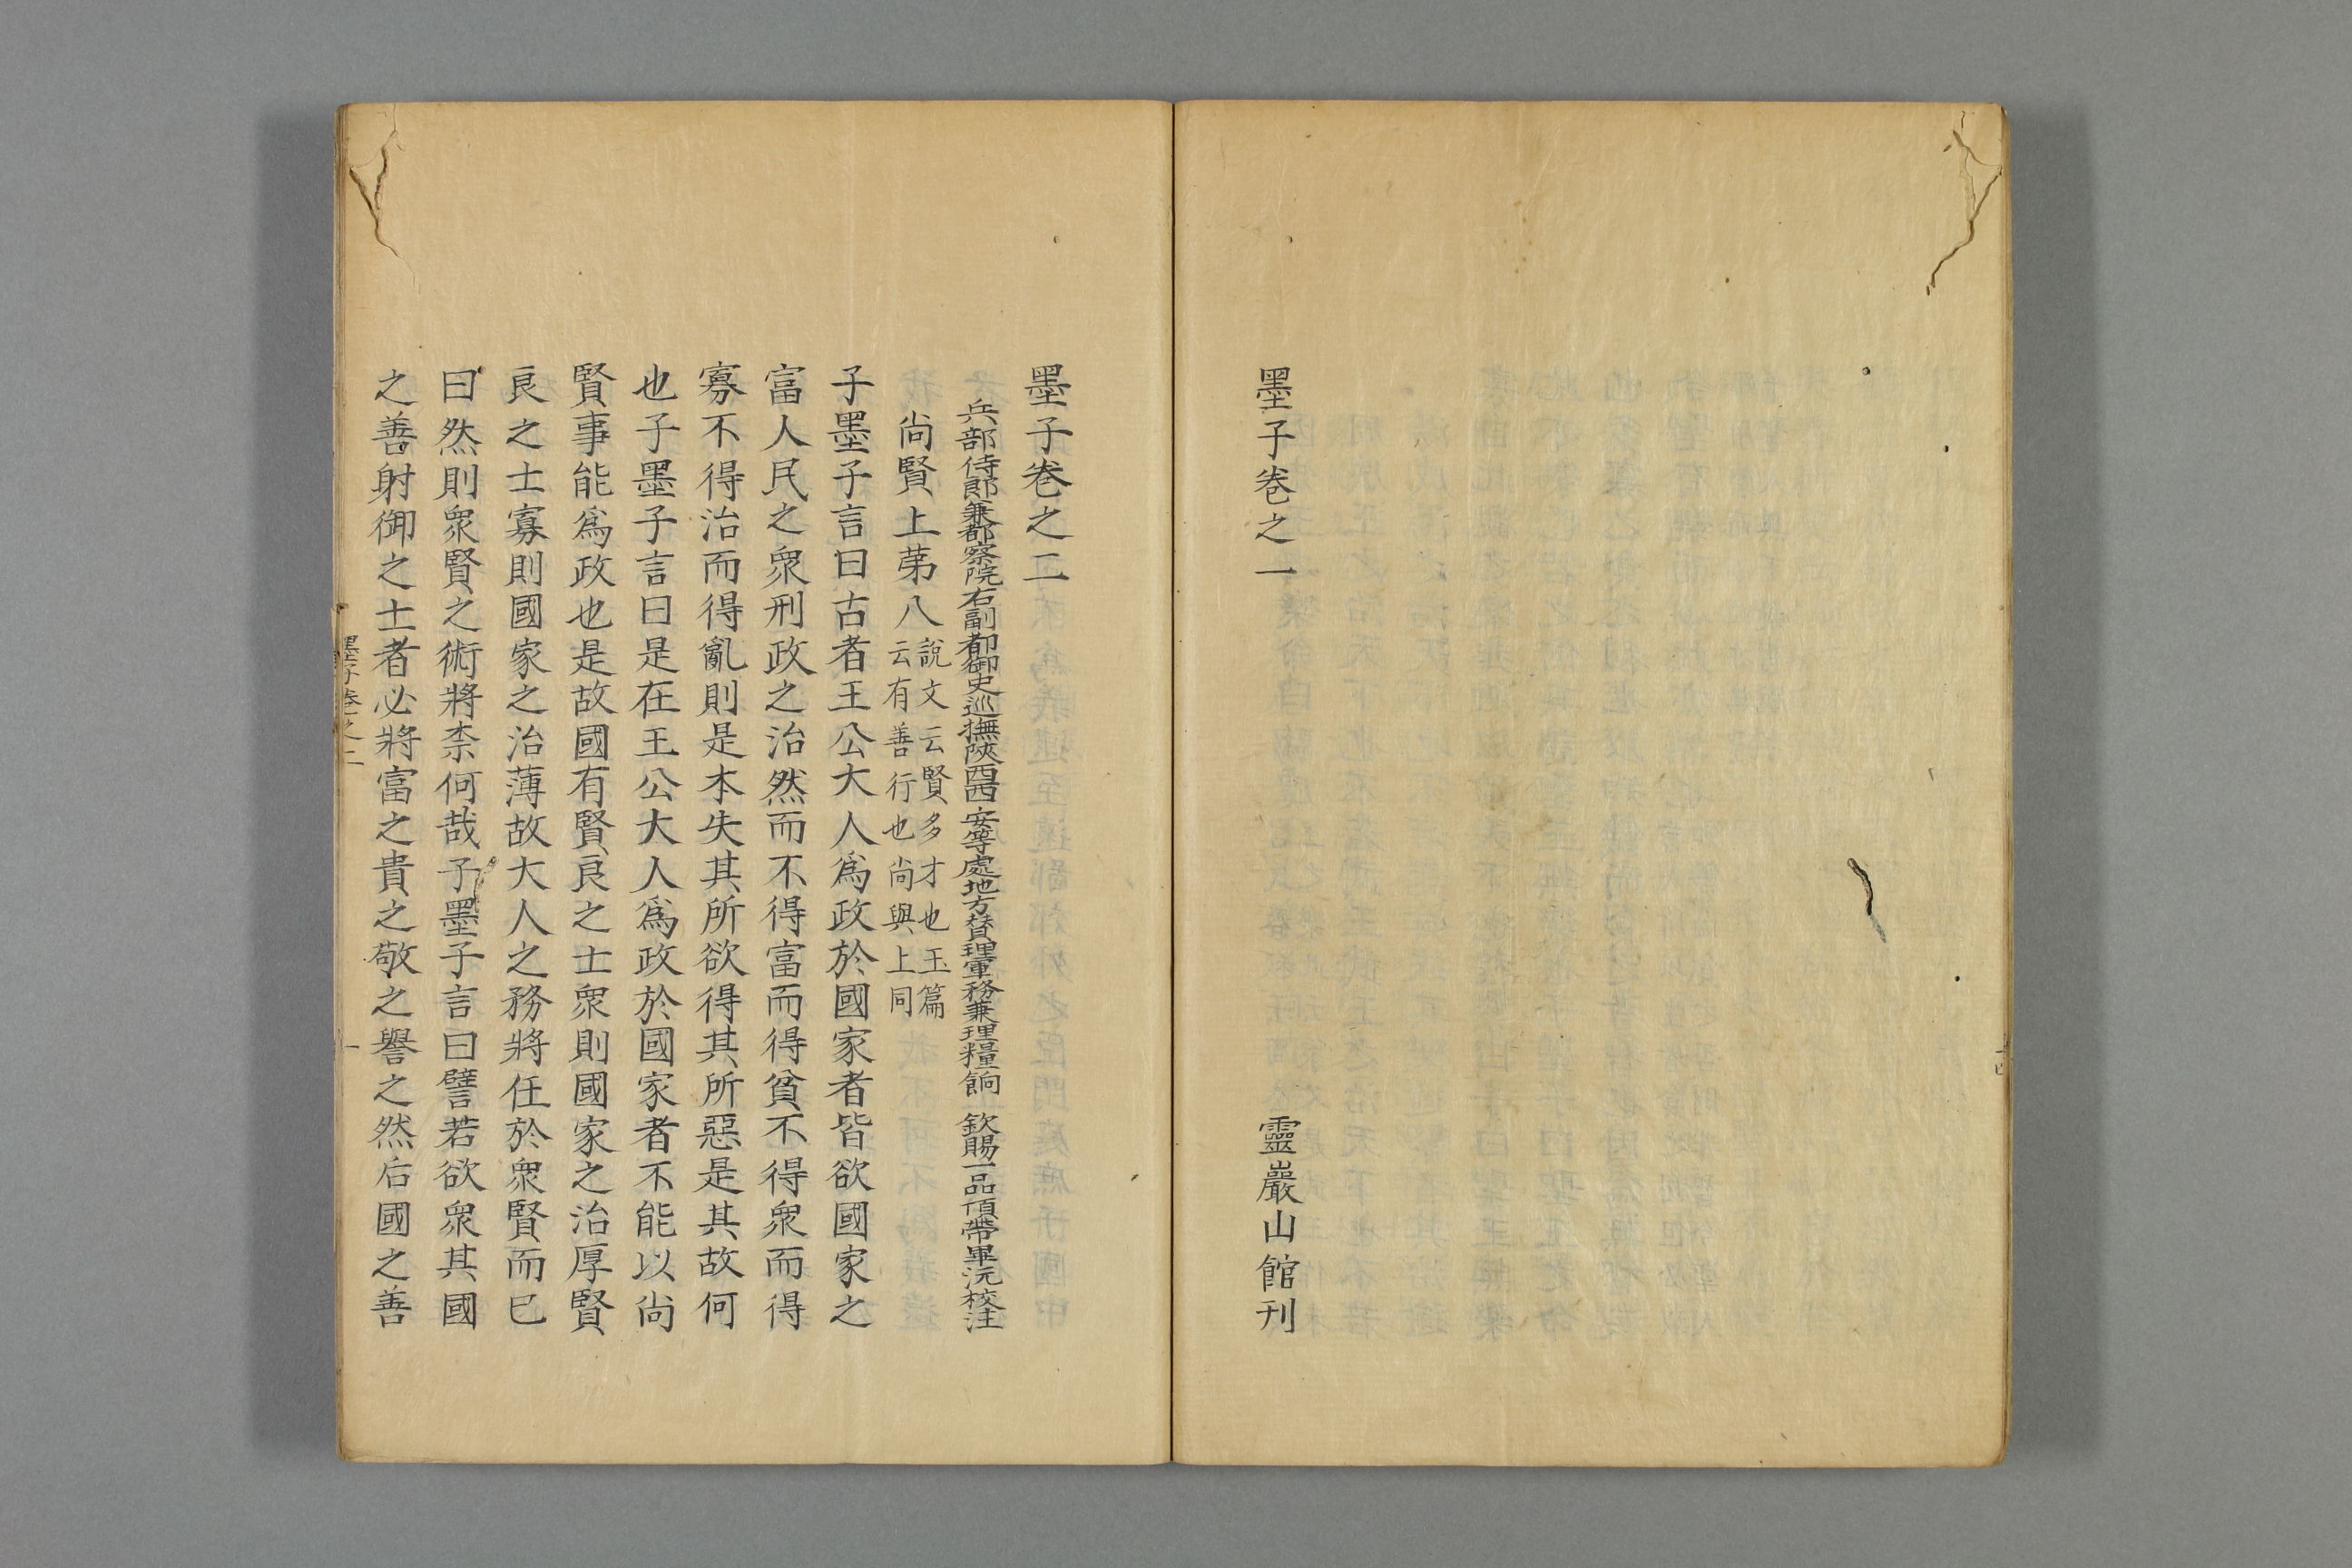 墨子卷之一
靈巖山館刊
墨子卷之二
兵部侍郎兼都察院右副都御史巡撫陝西西安等處地方贊理軍務兼理糧餉 欽賜一品頂帶畢沅校注
尙賢上第八
說文云賢多才也玉篇
云有善行也尙與上同
子墨子言曰古者王公大人爲政於國家者皆欲國家之
富人民之衆刑政之治然而不得富而得貧不得衆而得
寡不得治而得亂則是本失其所欲得其所惡是其故何
也子墨子言曰是在王公大人爲政於國家者不能以尙
賢事能爲政也是故國有賢良之士衆則國家之治厚賢
良之士寡則國家之治薄故大人之務將任於衆賢而已
曰然則衆賢之術將柰何哉子墨子言曰譬若欲衆其國
之善射御之士者必將富之貴之敬之譽之然后國之善
墨子卷之二
一